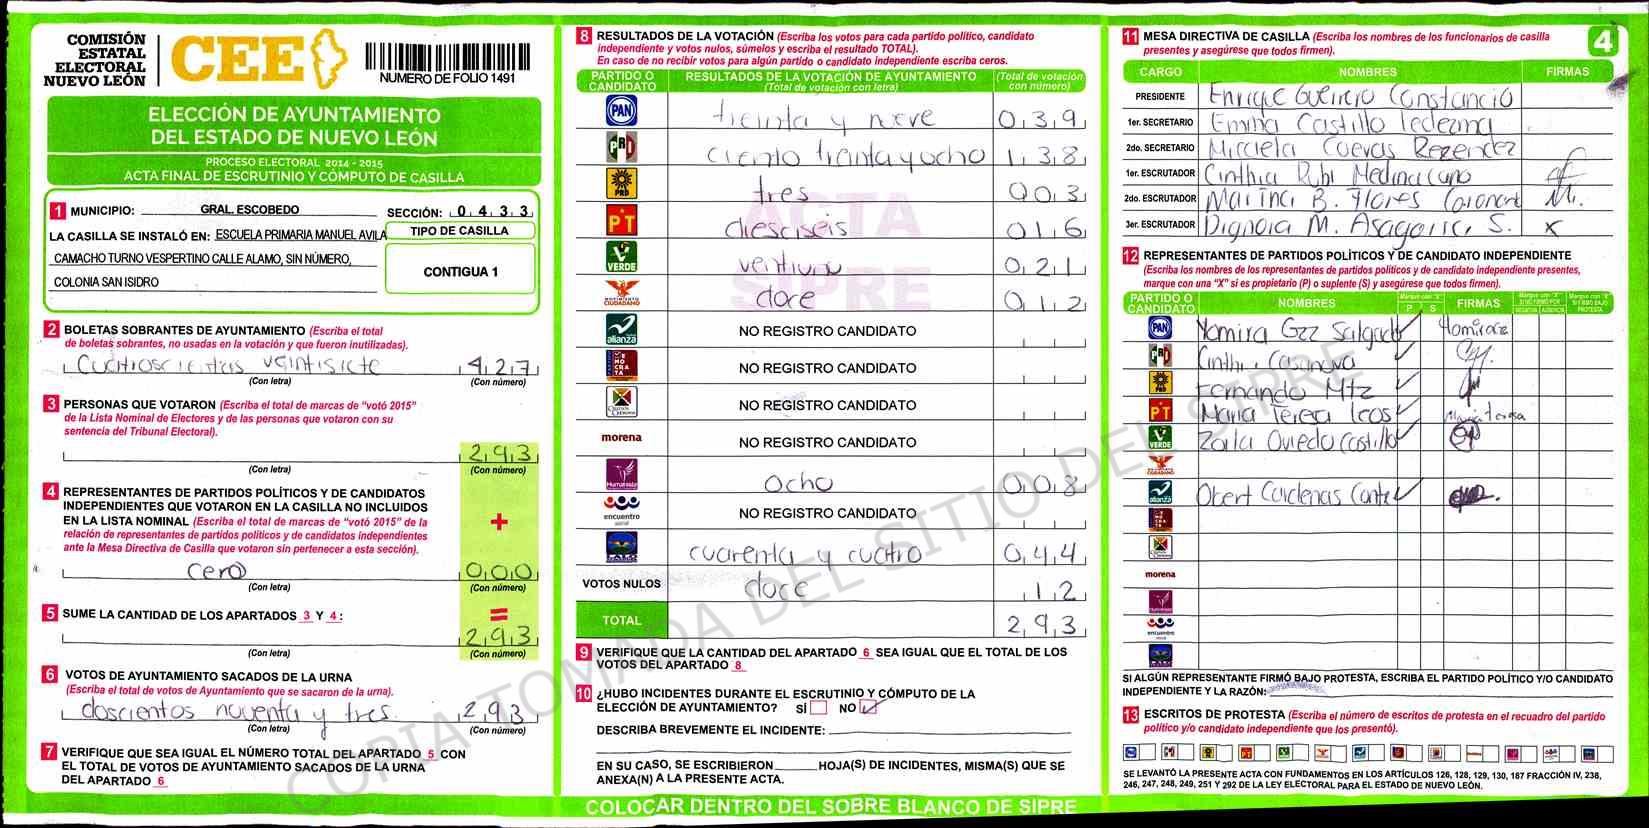 COMISIÓN
ESTATAL
ELECTORAL
NUEVO LEÓN
CEE
NUMERO DE FOLIO 1491
ELECCIÓN DE AYUNTAMIENTO
DEL ESTADO DE NUEVO LEÓN
PROCESO ELECTORAL 2014 - 2015
ACTA FINAL DE ESCRUTINIO Y CÓMPUTO DE CASILLA
1 MUNICIPIO: GRAL. ESCOBEDO SECCIÓN: 0 4 3 3
LA CASILLA SE INSTALÓ EN: ESCUELA PRIMARIA MANUEL AVILA
CAMACHO TURNO VESPERTINO CALLE ALAMO, SIN NÚMERO,
COLONIA SAN ISIDRO
TIPO DE CASILLA
CONTIGUA 1
2 BOLETAS SOBRANTES DE AYUNTAMIENTO (Escriba el total
de boletas sobrantes, no usadas en la votación y que fueron inutilizadas).
Cuatroscientas veintisiete 4 2 7
(Con letra) (Con número)
3 PERSONAS QUE VOTARON (Escriba el total de marcas de "votó 2015"
de la Lista Nominal de Electores y de las personas que votaron con su
sentencia del Tribunal Electoral).
2 9 3
(Con letra) (Con número)
4 REPRESENTANTES DE PARTIDOS POLÍTICOS Y DE CANDIDATOS
INDEPENDIENTES QUE VOTARON EN LA CASILLA NO INCLUIDOS
EN LA LISTA NOMINAL (Escriba el total de marcas de "votó 2015" de la
relación de representantes de partidos políticos y de candidatos independientes
ante la Mesa Directiva de Casilla que votaron sin pertenecer a esta sección).
+
cero 0 0 0
(Con letra) (Con número)
5 SUME LA CANTIDAD DE LOS APARTADOS 3 Y 4 :
=
2 9 3
(Con letra) (Con número)
6 VOTOS DE AYUNTAMIENTO SACADOS DE LA URNA
(Escriba el total de votos de Ayuntamiento que se sacaron de la urna).
doscientos noventa y tres 2 9 3
(Con letra) (Con número)
7 VERIFIQUE QUE SEA IGUAL EL NÚMERO TOTAL DEL APARTADO 5 CON
EL TOTAL DE VOTOS DE AYUNTAMIENTO SACADOS DE LA URNA
DEL APARTADO 6
8 RESULTADOS DE LA VOTACIÓN (Escriba los votos para cada partido político, candidato
independiente y votos nulos, súmelos y escriba el resultado TOTAL).
En caso de no recibir votos para algún partido o candidato independiente escriba ceros.
PARTIDO O CANDIDATO RESULTADOS DE LA VOTACIÓN DE AYUNTAMIENTO (Total de votación con letra) (Total de votación con número)
PAN treinta y nueve 0 3 9
PRI ciento treinta y ocho 1 3 8
PRD tres 0 0 3
PT diesciseis 0 1 6
VERDE veintiuno 0 2 1
MOVIMIENTO CIUDADANO doce 0 1 2
alianza NO REGISTRO CANDIDATO
DEMOCRATA NO REGISTRO CANDIDATO
NO REGISTRO CANDIDATO
morena NO REGISTRO CANDIDATO
Humanista ocho 0 0 8
encuentro social NO REGISTRO CANDIDATO
cuarenta y cuatro 0 4 4
VOTOS NULOS doce 1 2
TOTAL 2 9 3
ACTA
SIPRE
9 VERIFIQUE QUE LA CANTIDAD DEL APARTADO 6 SEA IGUAL QUE EL TOTAL DE LOS
VOTOS DEL APARTADO 8
10 ¿HUBO INCIDENTES DURANTE EL ESCRUTINIO Y CÓMPUTO DE LA
ELECCIÓN DE AYUNTAMIENTO? SÍ NO
DESCRIBA BREVEMENTE EL INCIDENTE:
EN SU CASO, SE ESCRIBIERON HOJA(S) DE INCIDENTES, MISMA(S) QUE SE
ANEXA(N) A LA PRESENTE ACTA.
COLOCAR DENTRO DEL SOBRE BLANCO DE SIPRE
11 MESA DIRECTIVA DE CASILLA (Escriba los nombres de los funcionarios de casilla
presentes y asegúrese que todos firmen).
4
CARGO NOMBRES FIRMAS
PRESIDENTE Enrique Guerrero Constancio
1er. SECRETARIO Emma Castillo Ledezma
2do. SECRETARIO Micaela Cuevas Rezendez
1er. ESCRUTADOR Cinthia Rubi Medina Cano
2do. ESCRUTADOR Martina B. Flores
3er. ESCRUTADOR Dignora M. S. X
12 REPRESENTANTES DE PARTIDOS POLÍTICOS Y DE CANDIDATO INDEPENDIENTE
(Escriba los nombres de los representantes de partidos políticos y de candidato independiente presentes,
marque con una "X" si es propietario (P) o suplente (S) y asegúrese que todos firmen).
PARTIDO O CANDIDATO NOMBRES Marque con "X" P S FIRMAS
PAN Gzz Salgado
PRI Casanova
PRD Fernando Mtz
PT Maria Teresa Leos Maria teresa
VERDE Zoila Oviedo Castillo
MOVIMIENTO CIUDADANO
alianza Obert Cardenas
morena
encuentro social
SI ALGÚN REPRESENTANTE FIRMÓ BAJO PROTESTA, ESCRIBA EL PARTIDO POLÍTICO Y/O CANDIDATO
INDEPENDIENTE Y LA RAZÓN:
13 ESCRITOS DE PROTESTA (Escriba el número de escritos de protesta en el recuadro del partido
político y/o candidato independiente que los presentó).
SE LEVANTÓ LA PRESENTE ACTA CON FUNDAMENTOS EN LOS ARTÍCULOS 126, 128, 129, 130, 187 FRACCIÓN IV, 238,
246, 247, 248, 249, 251 Y 292 DE LA LEY ELECTORAL PARA EL ESTADO DE NUEVO LEÓN.
COPIA TOMADA DEL SITIO DEL SIPRE